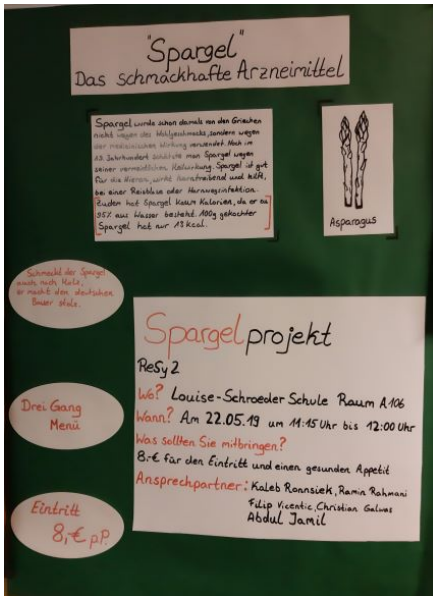 "Spargel"
Das schmackhafte Arzneimittel
Spargel wurde schon damals von den Griechen
nicht wegen des Wohlgeschmacks, sondern wegen
der medizinischen Wirkung verwendet. Noch im
19. Jahrhundert schätzte man Spargel wegen
seiner vermeintlichen Heilwirkung. Spargel ist gut
für die Nieren, wirkt harntreibend und hilft,
bei einer Reizblase oder Harnwegsinfektion.
Zudem hat Spargel kaum Kalorien, da er zu
95% aus Wasser besteht. 100g gekochter
Spargel hat nur 18kcal.
Asparagus
Schmeckt der Spargel
auch nach Holz,
er macht den deutschen
Bauer stolz.
Spargelprojekt
ReSy2
Wo? Louise-Schroeder Schule Raum A106
Wann? Am 22.05.19 um 11:15 Uhr bis 12:00 Uhr
Was sollten Sie mitbringen?
8,-€ für den Eintritt und einen gesunden Appetit
Ansprechpartner: Kaleb Ronnsiek, Ramin Rahmani
Filip Vicentic, Christian Galwas
Abdul Jamil
Drei Gang
Menü
Eintritt
8,-€ p.P.